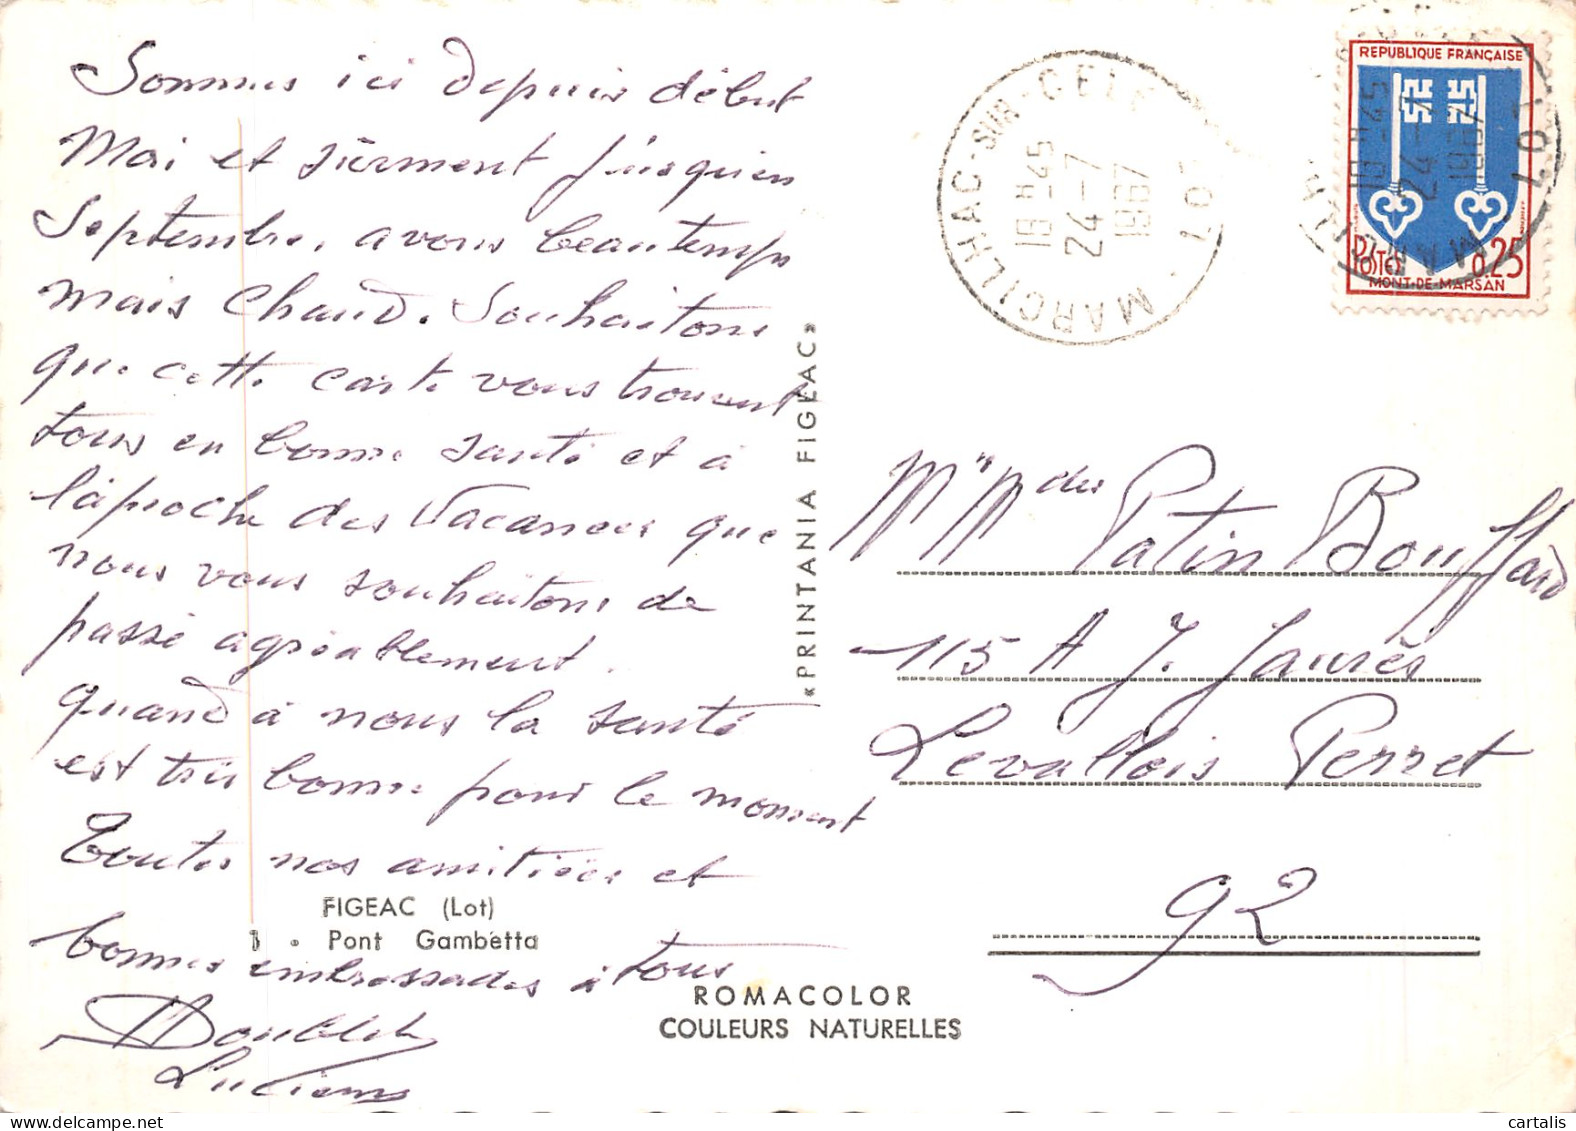 Sommes ici depuis début
Mai et sûrment jusqu'en
Septembre, avons beautemps
mais chaud. Souhaitons
que cette carte vous trouvent
tous en bonne santé et à
l'aproche des Vacances que
nous vous souhaitons de
passé agréablement.
quand à nous la santé
est très bonne pour le moment
Toutes nos amitiées et
bonnes embrassades à tous
Doublet
Lucienne
FIGEAC (Lot)
1 • Pont Gambetta
«PRINTANIA FIGEAC»
ROMACOLOR
COULEURS NATURELLES
MARCILHAC-SUR-CELE
LOT
18H-45
24-7
1967
REPUBLIQUE FRANÇAISE
POSTES 0.25
MONT-DE-MARSAN
18H-45
24-7
1967
LOT
Mr Mmdes Patin Bouffard
115 A J. Jaurès
Levallois Perret
92
cartalis